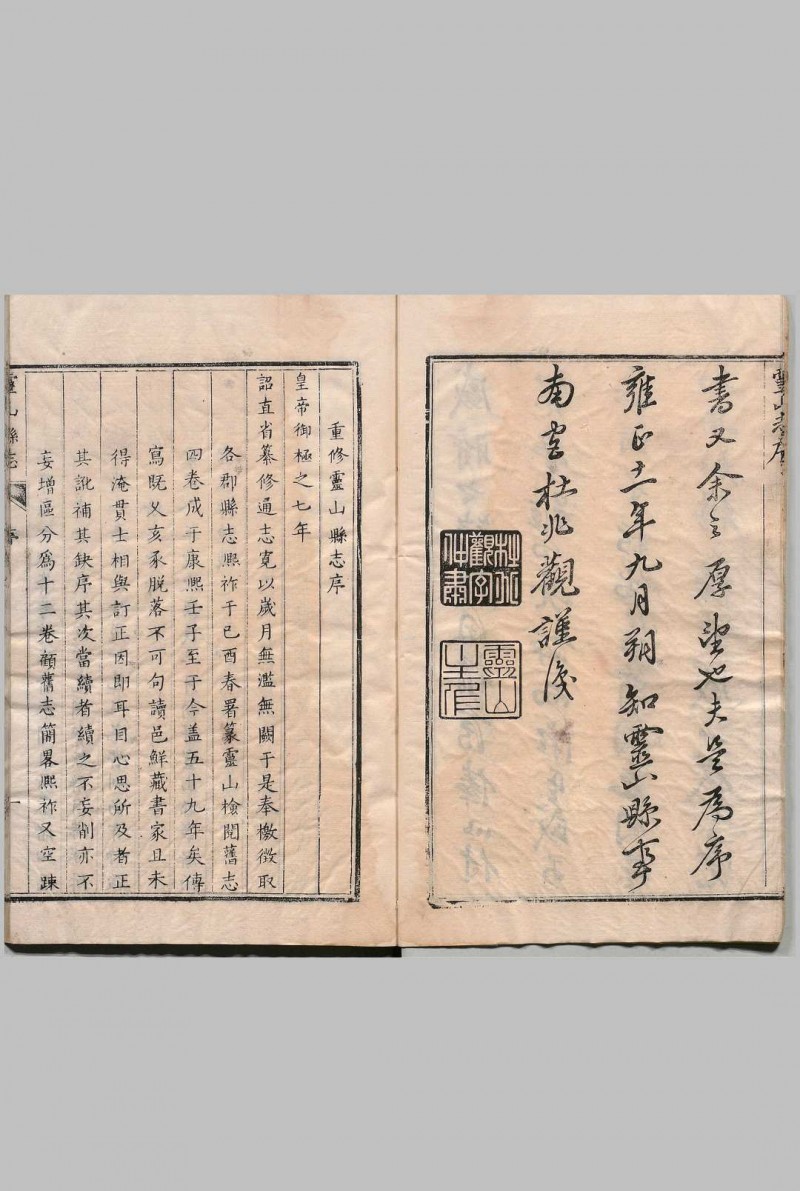 靈山志序
書又余之厚望也夫是為序
雍正十一年九月朔知靈山縣事
南宮杜兆觀謹識
杜兆觀字仲肅
靈山主人
重修靈山縣志序
皇帝御極之七年
詔直省纂修通志寬以歲月無濫無闕于是奉檄徵取
各郡縣志熙祚于己酉春署篆靈山檢閱舊志
四卷成于康熙壬子至于今盖五十九年矣傳
寫既乂亥豕脫落不可句讀邑鮮藏書家且未
得淹貫士相與訂正因即耳目心思所及者正
其訛補其缺序其次當續者續之不妄削亦不
妄增區分爲十二卷顧舊志簡畧熙祚又空踈
靈山縣志
序
一